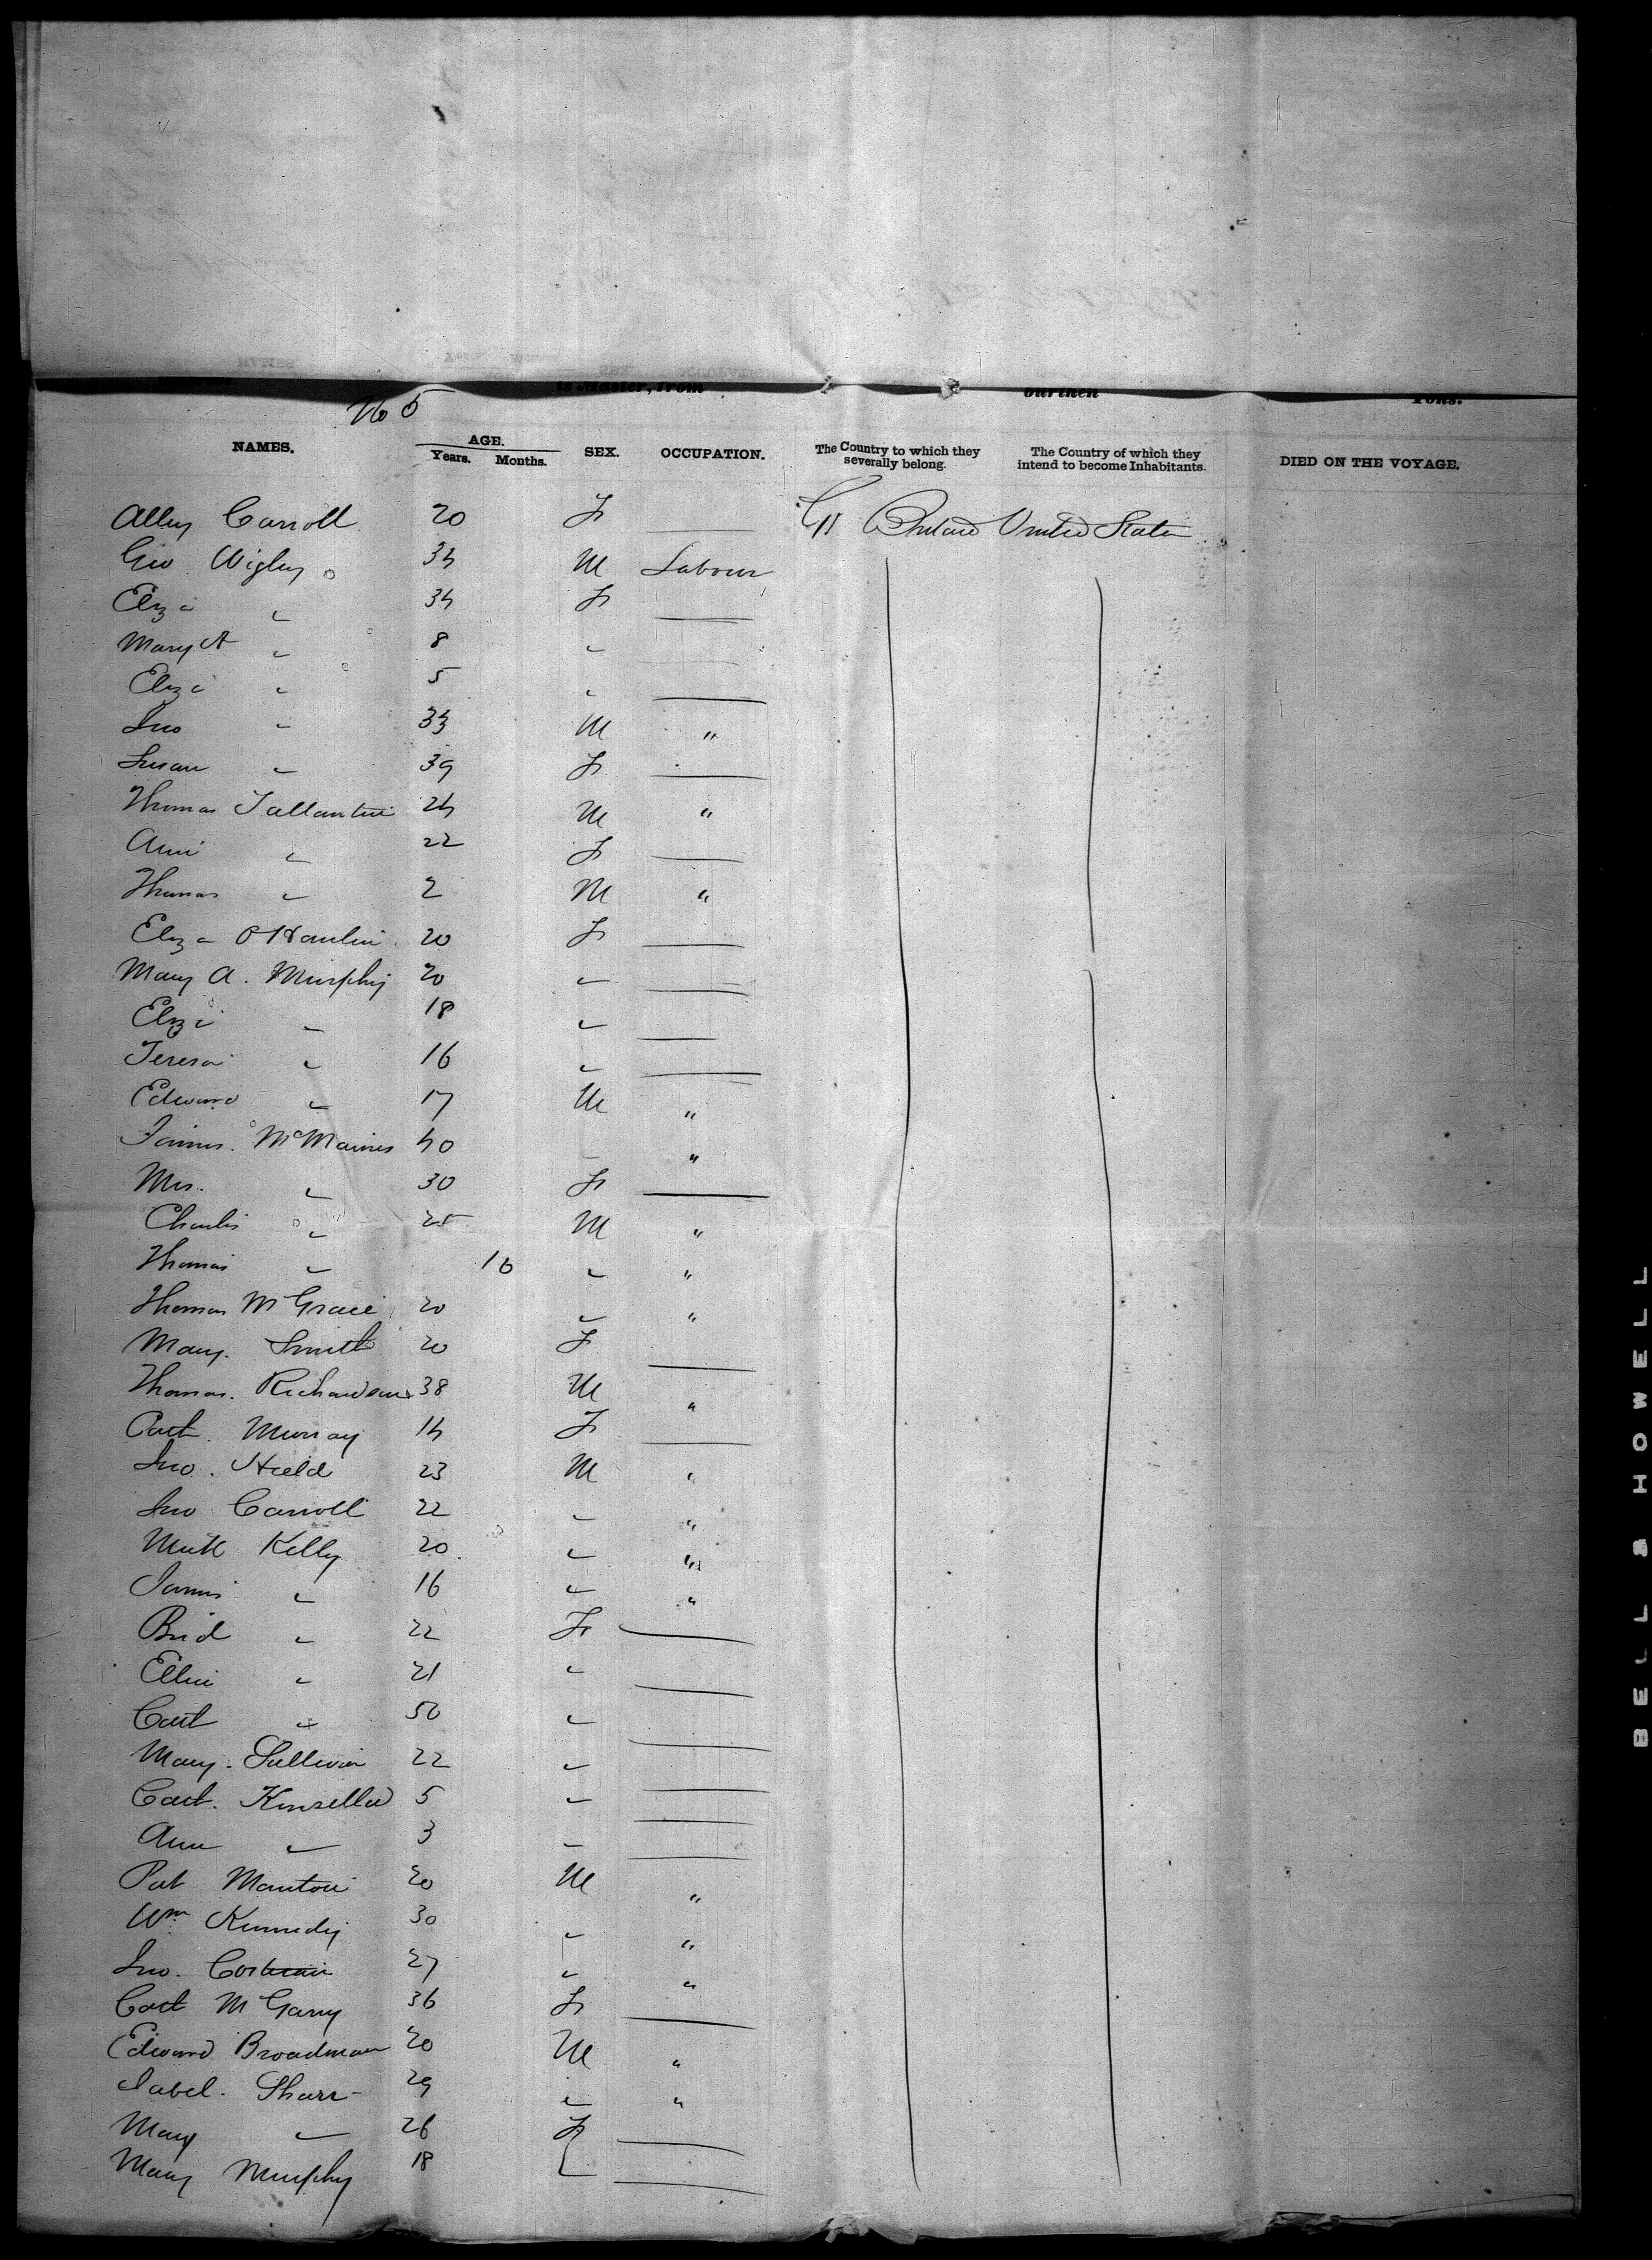 is Master, from burthen Tons.
No 5
NAMES. AGE. Years. Months. SEX. OCCUPATION. The Country to which they severally belong. The Country of which they intend to become Inhabitants. DIED ON THE VOYAGE.
Alley Carroll 20 F — Gt Britain United States
Geo Wigley 34 M Labour
Eliza " 34 F —
Mary A " 8 " —
Eliza " 5 " —
Jno " 33 M "
Susan " 39 F —
Thomas Tallantire 24 M "
Ann " 22 F —
Thomas " 2 M "
Eliza O'Hanlin 20 F —
Mary A. Murphy 20 " —
Eliza " 18 " —
Teresa " 16 " —
Edward " 17 M "
James. McManis 40 "
Mrs. " 30 F —
Charles " 25 M "
Thomas " 10 " "
Thomas McGrace 20 " "
Mary. Smith 20 F —
Thomas. Richardson 38 M "
Cath. Murray 14 F —
Jno. Hield 23 M "
Jno Carroll 22 " "
Kelly 20 " "
James " 16 " "
Brid " 22 F —
Ellen " 21 " —
Cath " 50 " —
Mary. Sullivan 22 " —
Cath. Kinsella 5 " —
Ann " 3 " —
Pat Manton 20 M "
Wm Kennedy 30 " "
Jno. 27 " "
Cath McGarry 36 F —
Edward Broadman 20 M "
Isabel. Sharr 29 " "
Mary " 26 F —
Mary Murphy 18 —
BELL & HOWELL